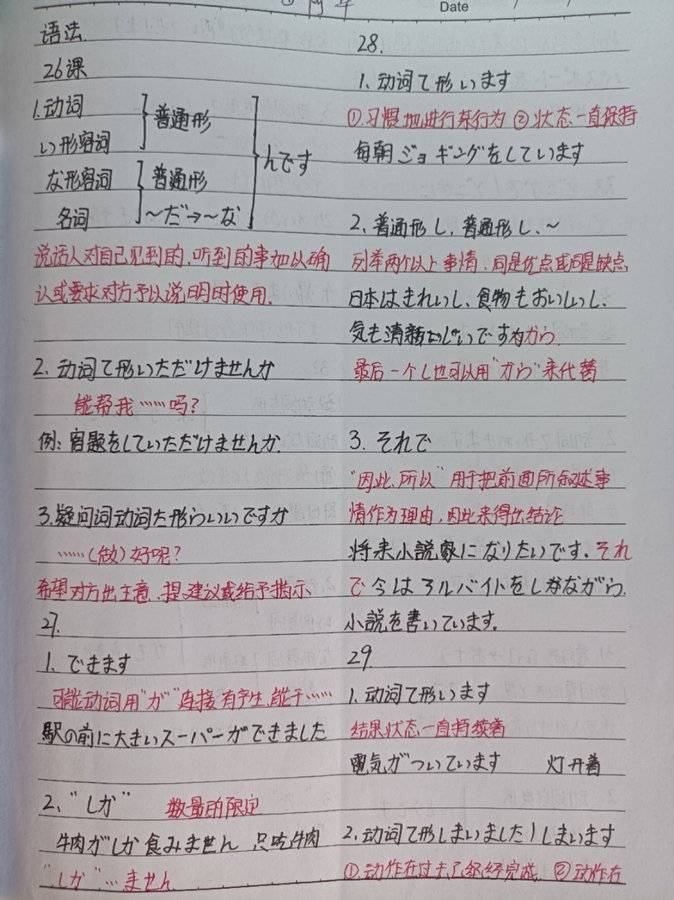 Date
语法
26课
1.动词
い形容词
普通形
な形容词
名词
普通形
～だ→～な
んです
说话人对自己见到的,听到的事加以确
认或要求对方予以说明时使用.
2.动词て形いただけませんか
能帮我……吗?
例:宿題をしていただけませんか.
3.疑问词动词た形らいいですか
……(做)好呢?
希望对方出主意、提建议或给予指示
27.
1.できます
可能动词用"が"连接 有产生,能于……
駅の前に大きいスーパーができました
2."しか" 数量的限定
牛肉がしか食みません 只吃牛肉
"しか"…ません
28.
1.动词て形います
①习惯地进行某行为 ②状态一直保持
毎朝ジョギングをしています
2.普通形し,普通形し、～
列举两个以上事情,同是优点或同是缺点
日本はきれいし、食物もおいしいし、
気も清新 いいですから
最后一个し也可以用"から"来代替
3.それで
"因此,所以"用于把前面所叙述事
情作为理由,因此来得出结论
将来小説家になりたいです。それ
で今はアルバイトをしなながら、
小説を書いています。
29
1.动词て形います
结果状态一直持续着
電気がついています 灯开着
2.动词て形しまいました|しまいます
①动作在过去已经经完成 ②动作在